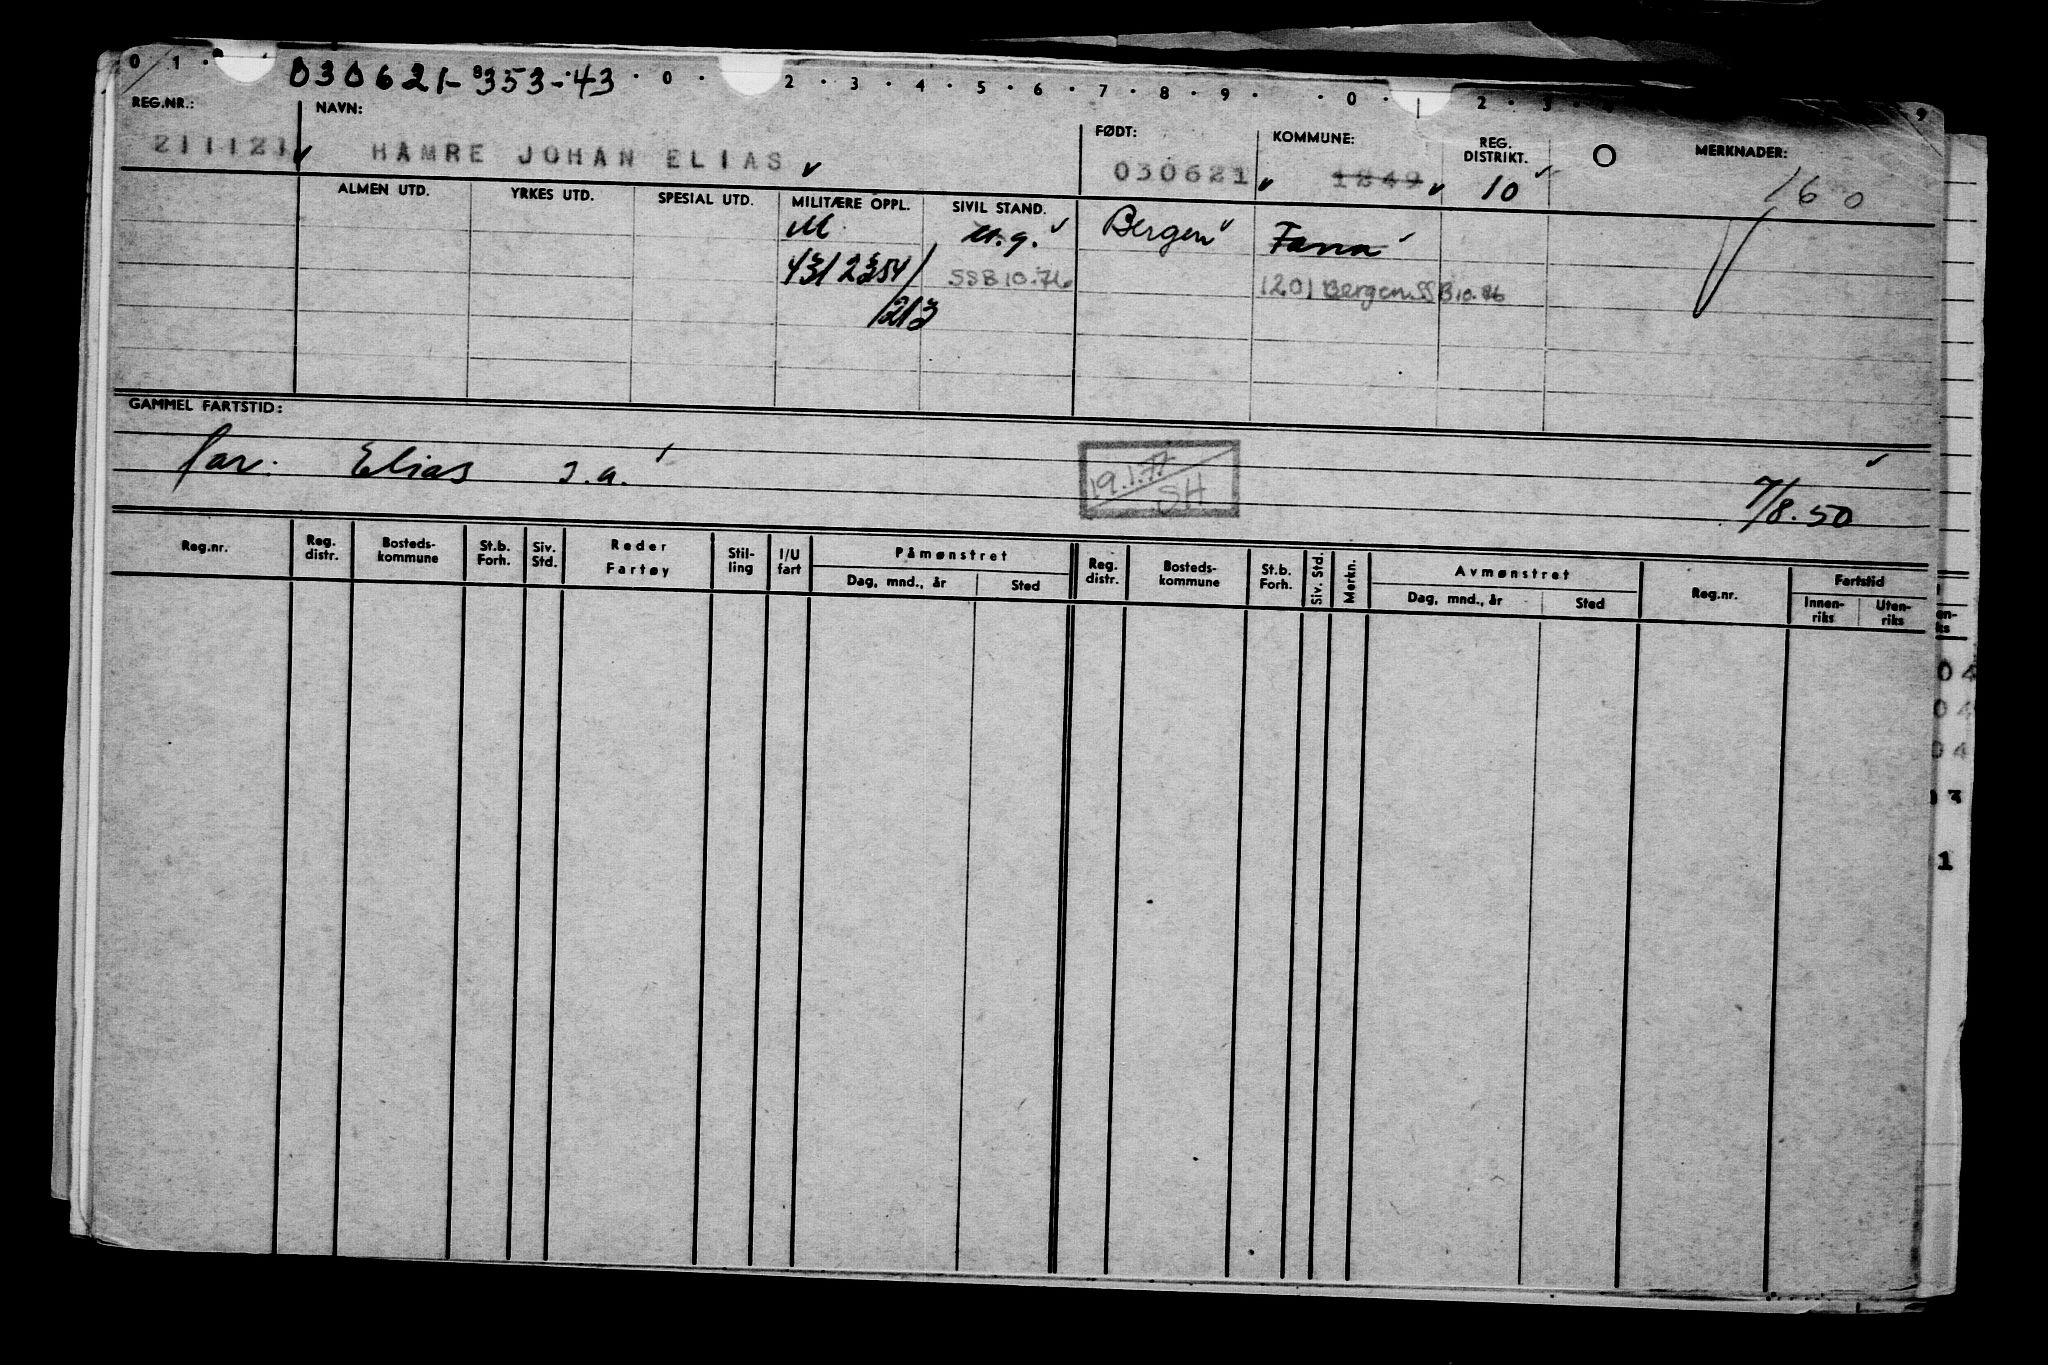 0 1 · 030621-35343 · 0 · 2 · 3 · 4 · 5 · 6 · 7 · 8 · 9 · · 0 · 1 2 · 3 · 9
REG.NR.: NAVN: FØDT: KOMMUNE: REG. DISTRIKT. MERKNADER:
211121 HAMRE JOHAN ELIAS 030621 1249 10 160
ALMEN UTD. YRKES UTD. SPESIAL UTD. MILITÆRE OPPL. SIVIL STAND.
M u.g. Bergen Fana
SSB 10.76 1201 Bergen SSB 10.76
1213
GAMMEL FARTSTID:
far: Elias s.a. 19.1.77 SH 7/8.50
Reg.nr. Reg. distr. Bosteds-kommune St.b. Forh. Siv. Std. Reder Fartøy Stil-ling I/U fart Påmønstret Reg. distr. Bosteds-kommune St.b. Forh. Siv. Std. Merkn. Avmønstret Reg.nr. Fartstid
Dag, mnd., år Sted Dag, mnd., år Sted Innen-riks Uten-riks
en-
ks
04
04
04
1